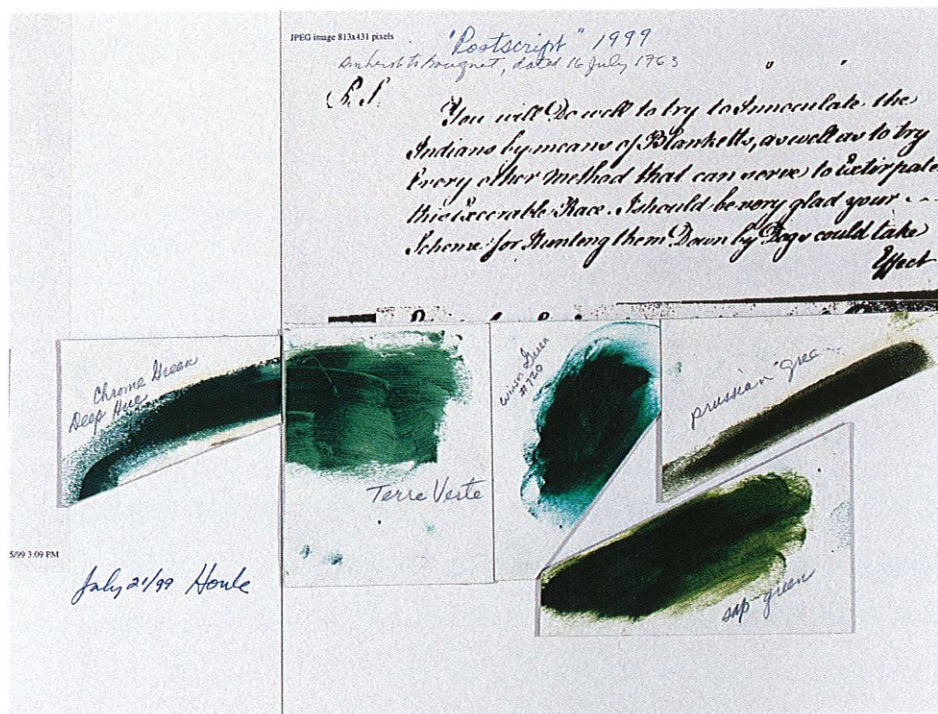 JPEG image 813x431 pixels
"Postscript" 1999
Amherst to Bouquet, dated 16 July 1763
" "
P.S.
You will Do well to try to Innoculate the
Indians by means of Blanketts, as well as to try
Every other method that can serve to Extirpate
this Execrable Race. I should be very glad your
Scheme for Hunting them Down by Dogs could take
Effect
Chrome Green
Deep Hue
Terre Verte
Winsor Green
#720
prussian green
sap green
5/99 3:09 PM
July 21/99 Houle